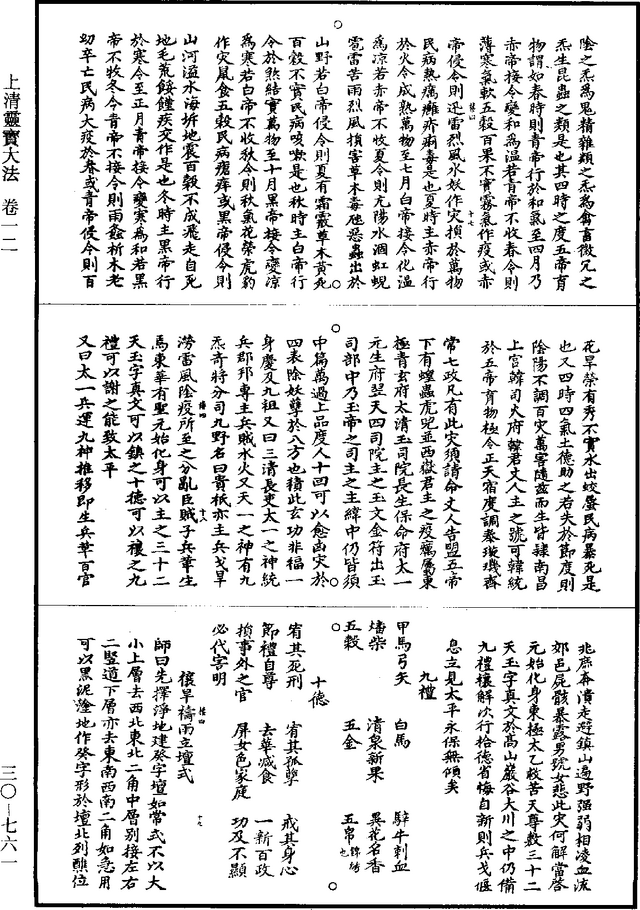 上清靈寶大法 卷一二
三〇—七六一
陰之炁為鬼精雜類之炁為禽畜微冗之
炁生昆蟲之類是也其四時之度五帝育
物謂如春時則青帝行於和氣至四月乃
赤帝接令變和為溫若青帝不收春令則
薄寒氣軟五穀百果不實霧氣作疫或赤
帝侵令則迅雷烈風水妖作灾損於萬物
民病熱痛癰疥痢毒是也夏時主赤帝行
於火令成熟萬物至七月白帝接令化溫
為涼若赤帝不收夏令則亢陽水涸虹蜺
雹雷苦雨烈風損害草木毒虺惡蟲出於
山野若白帝侵令則夏有霜霰草木黃死
百穀不實民病咳嗽是也秋時主白帝行
令於然結實萬物至十月黑帝接令變涼
為寒若白帝不收秋令則秋氣花榮虎豹
作灾鼠食五穀民病瘡痒或黑帝侵令則
山河溢水海坼地震百穀不成飛走自死
地毛荒餒饉疾交作是也冬時主黑帝行
於寒令至正月青帝接令變寒為和若黑
帝不收冬令青帝不接令則雨螽折木老
幼卒亡民病大疫於春或青帝侵令則百
花早榮有秀不實水出蛟蜃民病暴死是
也又四時四氣土德助之若失於節度則
陰陽不調百灾萬害隨茲而生皆隸南昌
上宮韓司火府韓君丈人主之號可韓統
於五帝育物極令正天宿度調泰璇璣齊
常七政凡有此灾須請命丈人告盟五帝
下有蝗蟲虎兕並西嶽君主之疫癘屬東
極青玄府太清玉司院長生保命府太一
元生府翌天四司院主之玉文金符出玉
司部中乃玉帝之司主之主緯中仍皆須
中篇萬過上品度人十回可以愈凶灾於
四表除妖孽於八方也積此玄功非福一
身慶及九祖又曰三清長吏太一之神統
兵郡邦專主兵賊水火又天一之神有九
炁奇特分司九野名曰貴祇亦主兵戈旱
澇雷風陰疫所至之分亂臣賊子兵革生
焉東華有聖元始化身可以主之三十二
天玉字真文可以鎮之十德可以穰之九
禮可以謝之能致太平
又曰太一兵運九神推移即生兵革百官
兆庶奔潰走避鎮山遍野强弱相凌血流
郊邑屍骸暴露男號女悲此灾何解當啓
元始化身東極太乙救苦天尊敷三十二
天玉字真文於高山巖谷大川之中仍備
九禮禳解以行拾德省悔自新則兵戈偃
息立見太平永保無傾矣
九禮
甲馬弓矢 白馬 騂牛刺血
燔柴 清泉新果 異花名香
五穀 五金 五帛錦綺也
十德
宥其死刑 宥其孤孽 戒其身心
節禮自尊 去華減食 一新百政
損事外之官 屏女色家庭 功及不顯
必代字明
禳旱禱雨立壇式
師曰先擇淨地建癸字壇如常式不以大
小上層去西北東北二角中層别接左右
二豎道下層亦去東南西南二角如急用
可以黑泥塗地作癸字形於壇北列醮位